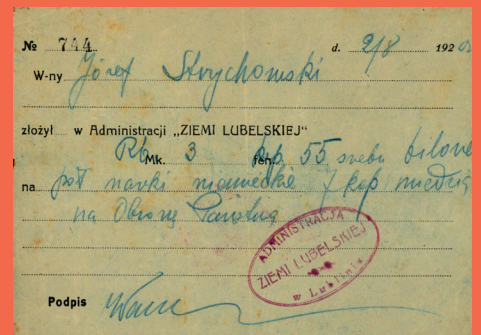 № 744 d. 2/8 1920
W-ny Józef Strychomski
złożył w Administracji „ZIEMI LUBELSKIEJ"
Rb Mk. 3 kop. fen. 55 srebr. bilone
na pół marki niemieckie 7 kop miedzią
na Obronę Państwa
ADMINISTRACJA
ZIEMI LUBELSKIEJ
w Lublinie
Podpis